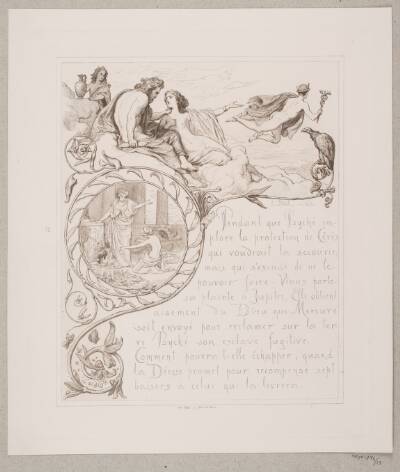 Pendant que Psyché im-
plore la protection de Cérès
qui voudrait la secourir,
mais qui s'excuse de ne le
pouvoir faire - Vénus porte
sa plainte à Jupiter. Elle obtient
aisément du Dieu que Mercure
soit envoyé pour réclamer sur la ter-
re Psyché son esclave fugitive.
Comment pourra-t-elle échapper, quand
la Déesse promet pour récompense sept
baisers à celui qui la livrera.